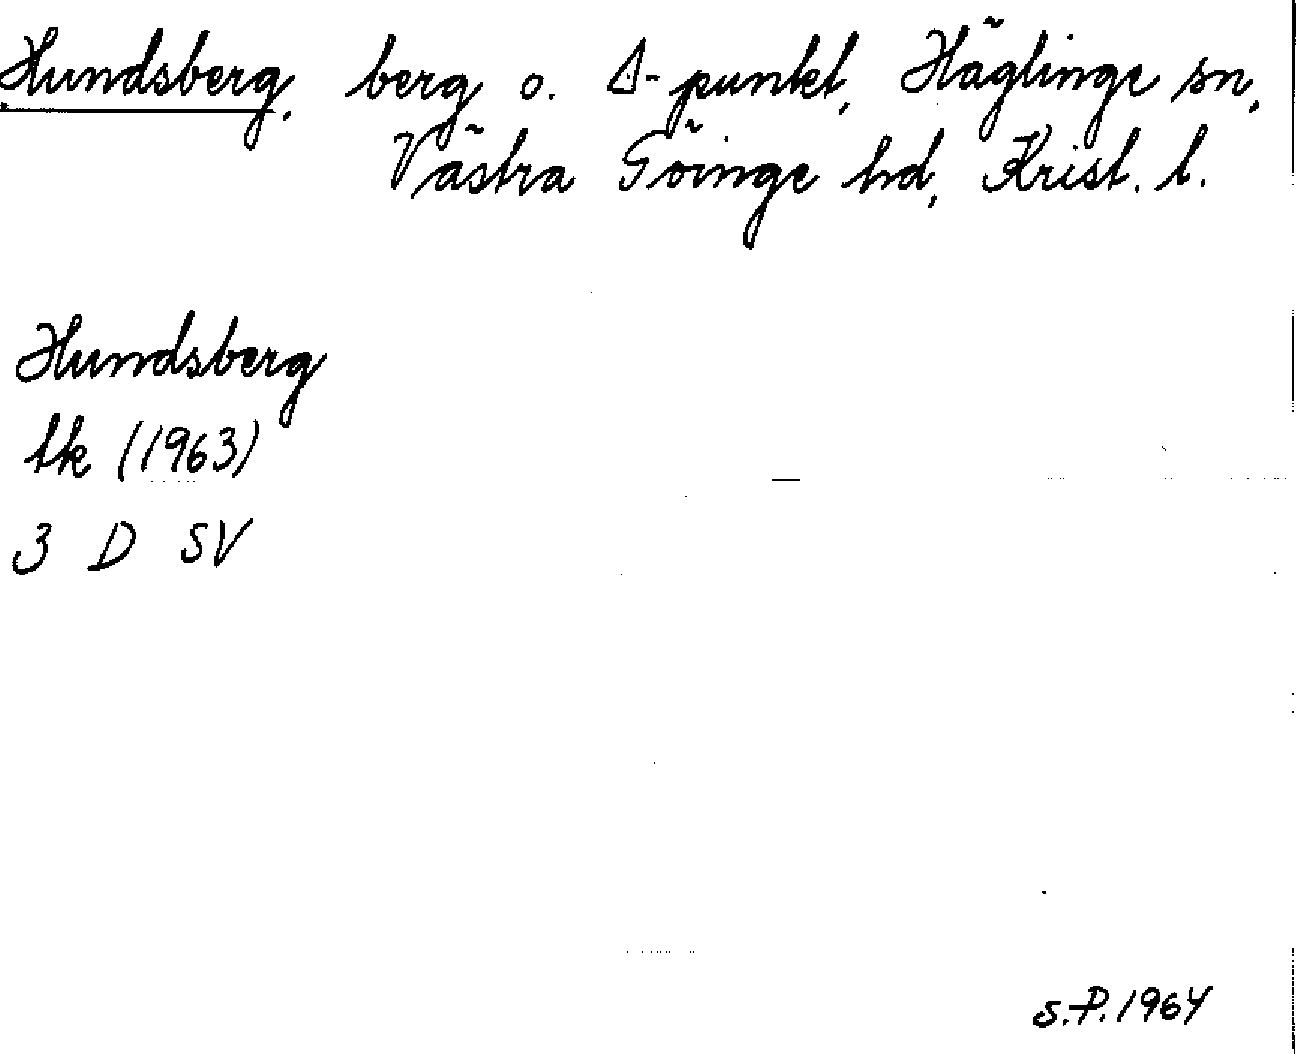 Hundsberg, berg o. Δ-punkt, Häglinge sn,
Västra Göinge hd, Krist. l.
Hundsberg
tk (1963)
3 D SV
S.P. 1964